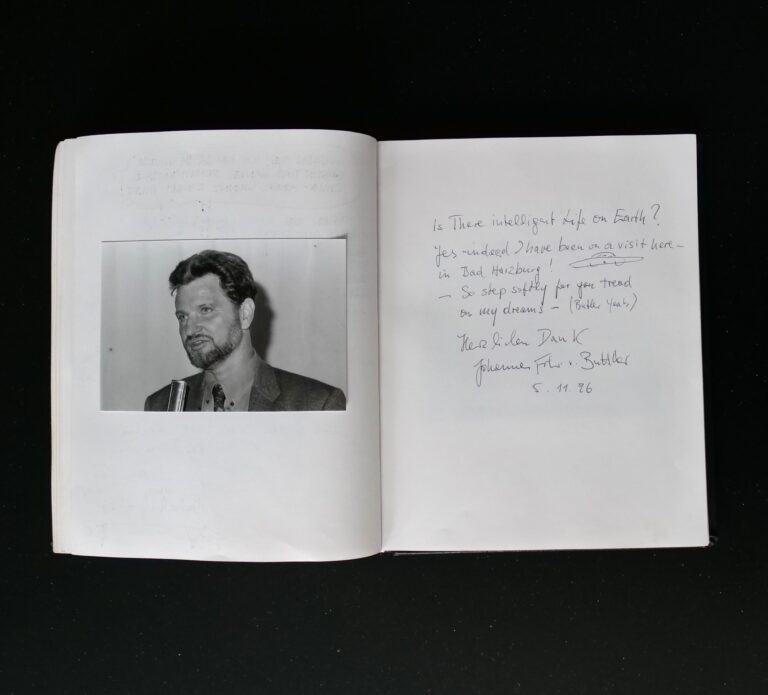 Is There intelligent Life on Earth?
Yes - indeed I have been on a visit here -
in Bad Harzburg!
- So step softly for you tread
on my dreams - (Butler Yeats)
Herzlichen Dank
Johannes Frhr. v. Buttlar
5. 11. 96